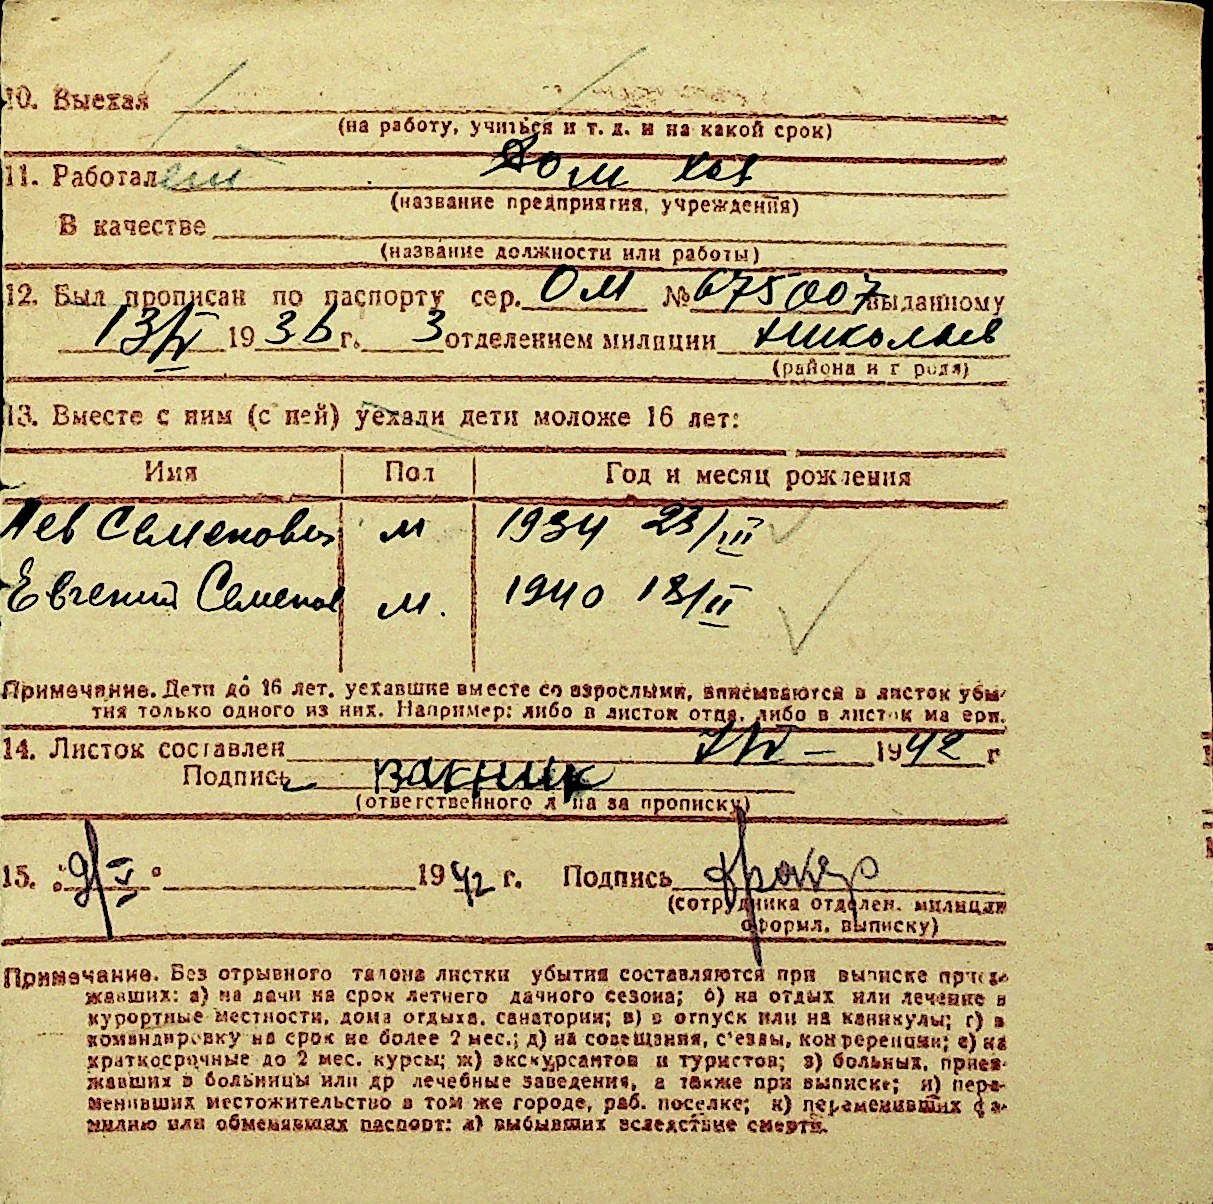 10. Выехал
(на работу, учиться и т. д. и на какой срок)
11. Работал Дом хоз
(название предприятия, учреждения)
В качестве
(название должности или работы)
12. Был прописан по паспорту сер. ОМ № 675007 выданному
13/V 1936 г. 3 отделением милиции Николаев
(района и города)
13. Вместе с ним (с ней) уехали дети моложе 16 лет:
Имя Пол Год и месяц рождения
Лев Семенович м 1934 23/III
Евгений Семенов м. 1940 18/II
Примечание. Дети до 16 лет, уехавшие вместе со взрослыми, вписываются в листок убы-
тия только одного из них. Например: либо в листок отца, либо в листок матери.
14. Листок составлен 1942 г
Подпись
(ответственного лица за прописку)
15. „9/V“ 1942 г. Подпись
(сотрудника отделен. милиции
оформл. выписку)
Примечание. Без отрывного талона листки убытия составляются при выписке приез-
жавших: а) на дачи на срок летнего дачного сезона; б) на отдых или лечение в
курортные местности, дома отдыха, санатории; в) в отпуск или на каникулы; г) в
командировку на срок не более 2 мес.; д) на совещания, с'езды, конференции; е) на
краткосрочные до 2 мес. курсы; ж) экскурсантов и туристов; з) больных, приез-
жавших в больницы или др лечебные заведения, а также при выписке; и) пере-
менивших местожительство в том же городе, раб. поселке; к) переменивших фа-
милию или обменявших паспорт; л) выбывших вследствие смерти.